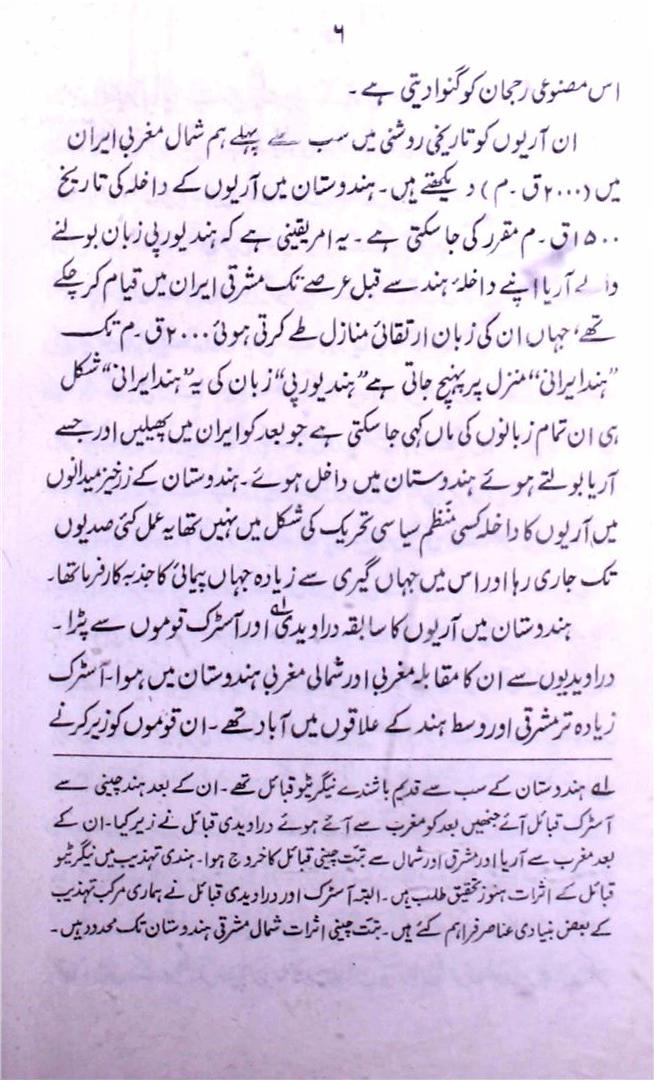 ۶
اس مصنوعی رجحان کو گنوا دیتی ہے ۔
ان آریوں کو تاریخی روشنی میں سب سے پہلے ہم شمال مغربی ایران
میں (۲۰۰۰ ق۔م) دیکھتے ہیں۔ ہندوستان میں آریوں کے داخلہ کی تاریخ
۱۵۰۰ ق۔م مقرر کی جا سکتی ہے۔ یہ امر یقینی ہے کہ ہند یورپی زبان بولنے
والے آریا اپنے داخلۂ ہند سے قبل عرصے تک مشرقی ایران میں قیام کر چکے
تھے، جہاں ان کی زبان ارتقائی منازل طے کرتی ہوئی ۲۰۰۰ ق۔م تک
”ہند ایرانی“ منزل پر پہنچ جاتی ہے ”ہند یورپی“ زبان کی یہ ”ہند ایرانی“ شکل
ہی ان تمام زبانوں کی ماں کہی جا سکتی ہے جو بعد کو ایران میں پھیلیں اور جسے
آریا بولتے ہوئے ہندوستان میں داخل ہوئے۔ ہندوستان کے زرخیز میدانوں
میں آریوں کا داخلہ کسی منظم سیاسی تحریک کی شکل میں نہیں تھا یہ عمل کئی صدیوں
تک جاری رہا اور اس میں جہاں گیری سے زیادہ جہاں پیمائی کا جذبہ کارفرما تھا۔
ہندوستان میں آریوں کا سابقہ دراویدی لہ اور آسٹرک قوموں سے پڑا ۔
دراویدیوں سے ان کا مقابلہ مغربی اور شمالی مغربی ہندوستان میں ہوا۔ آسٹرک
زیادہ تر مشرقی اور وسط ہند کے علاقوں میں آباد تھے۔ ان قوموں کو زیر کرنے
لہ ہندوستان کے سب سے قدیم باشندے نیگریٹو قبائل تھے۔ ان کے بعد ہند چینی سے
آسٹرک قبائل آئے جنھیں بعد کو مغرب سے آئے ہوئے دراویدی قبائل نے زیر کیا۔ ان کے
بعد مغرب سے آریا اور مشرق اور شمال سے تبت چینی قبائل کا خروج ہوا۔ ہندی تہذیب میں نیگریٹو
قبائل کے اثرات ہنوز تحقیق طلب ہیں۔ البتہ آسٹرک اور دراویدی قبائل نے ہماری مرکب تہذیب
کے بعض بنیادی عناصر فراہم کئے ہیں۔ تبت چینی اثرات شمال مشرقی ہندوستان تک محدود ہیں۔